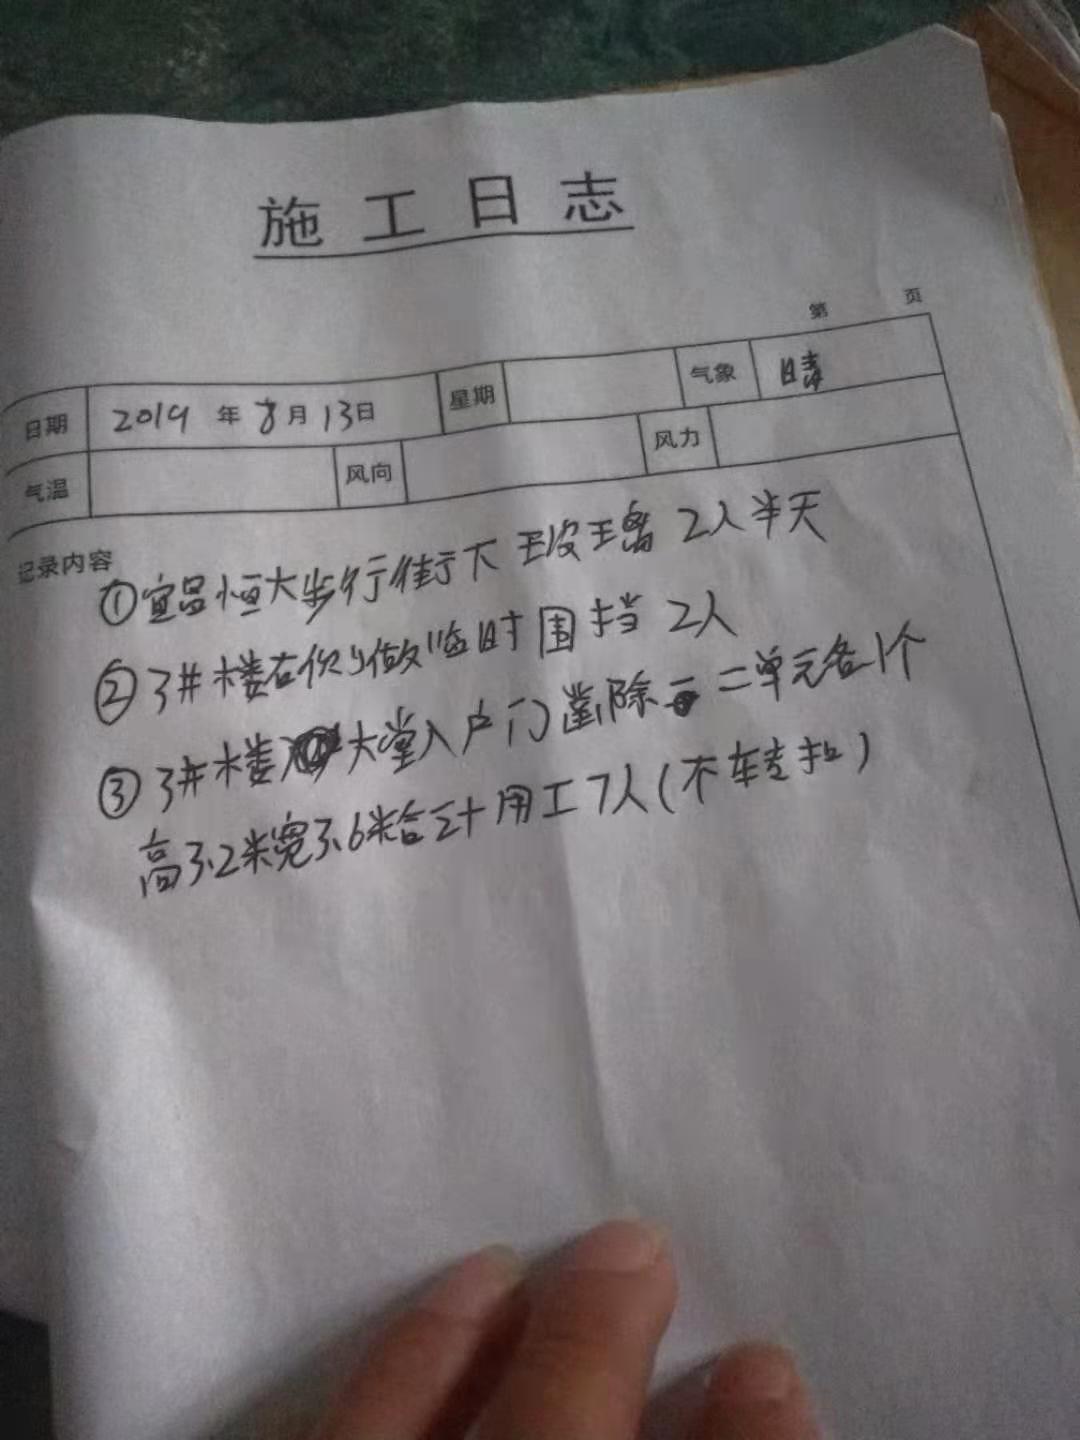 施工日志
第 页
日期 2019年8月13日 星期 气象 晴
气温 风向 风力
记录内容
①宜昌恒大步行街下玻璃 2人半天
②3#楼右侧做临时围挡 2人
③3#楼大堂入户门凿除二单元各1个
高3.2米宽3.6米合计用工7人(不车专扣)